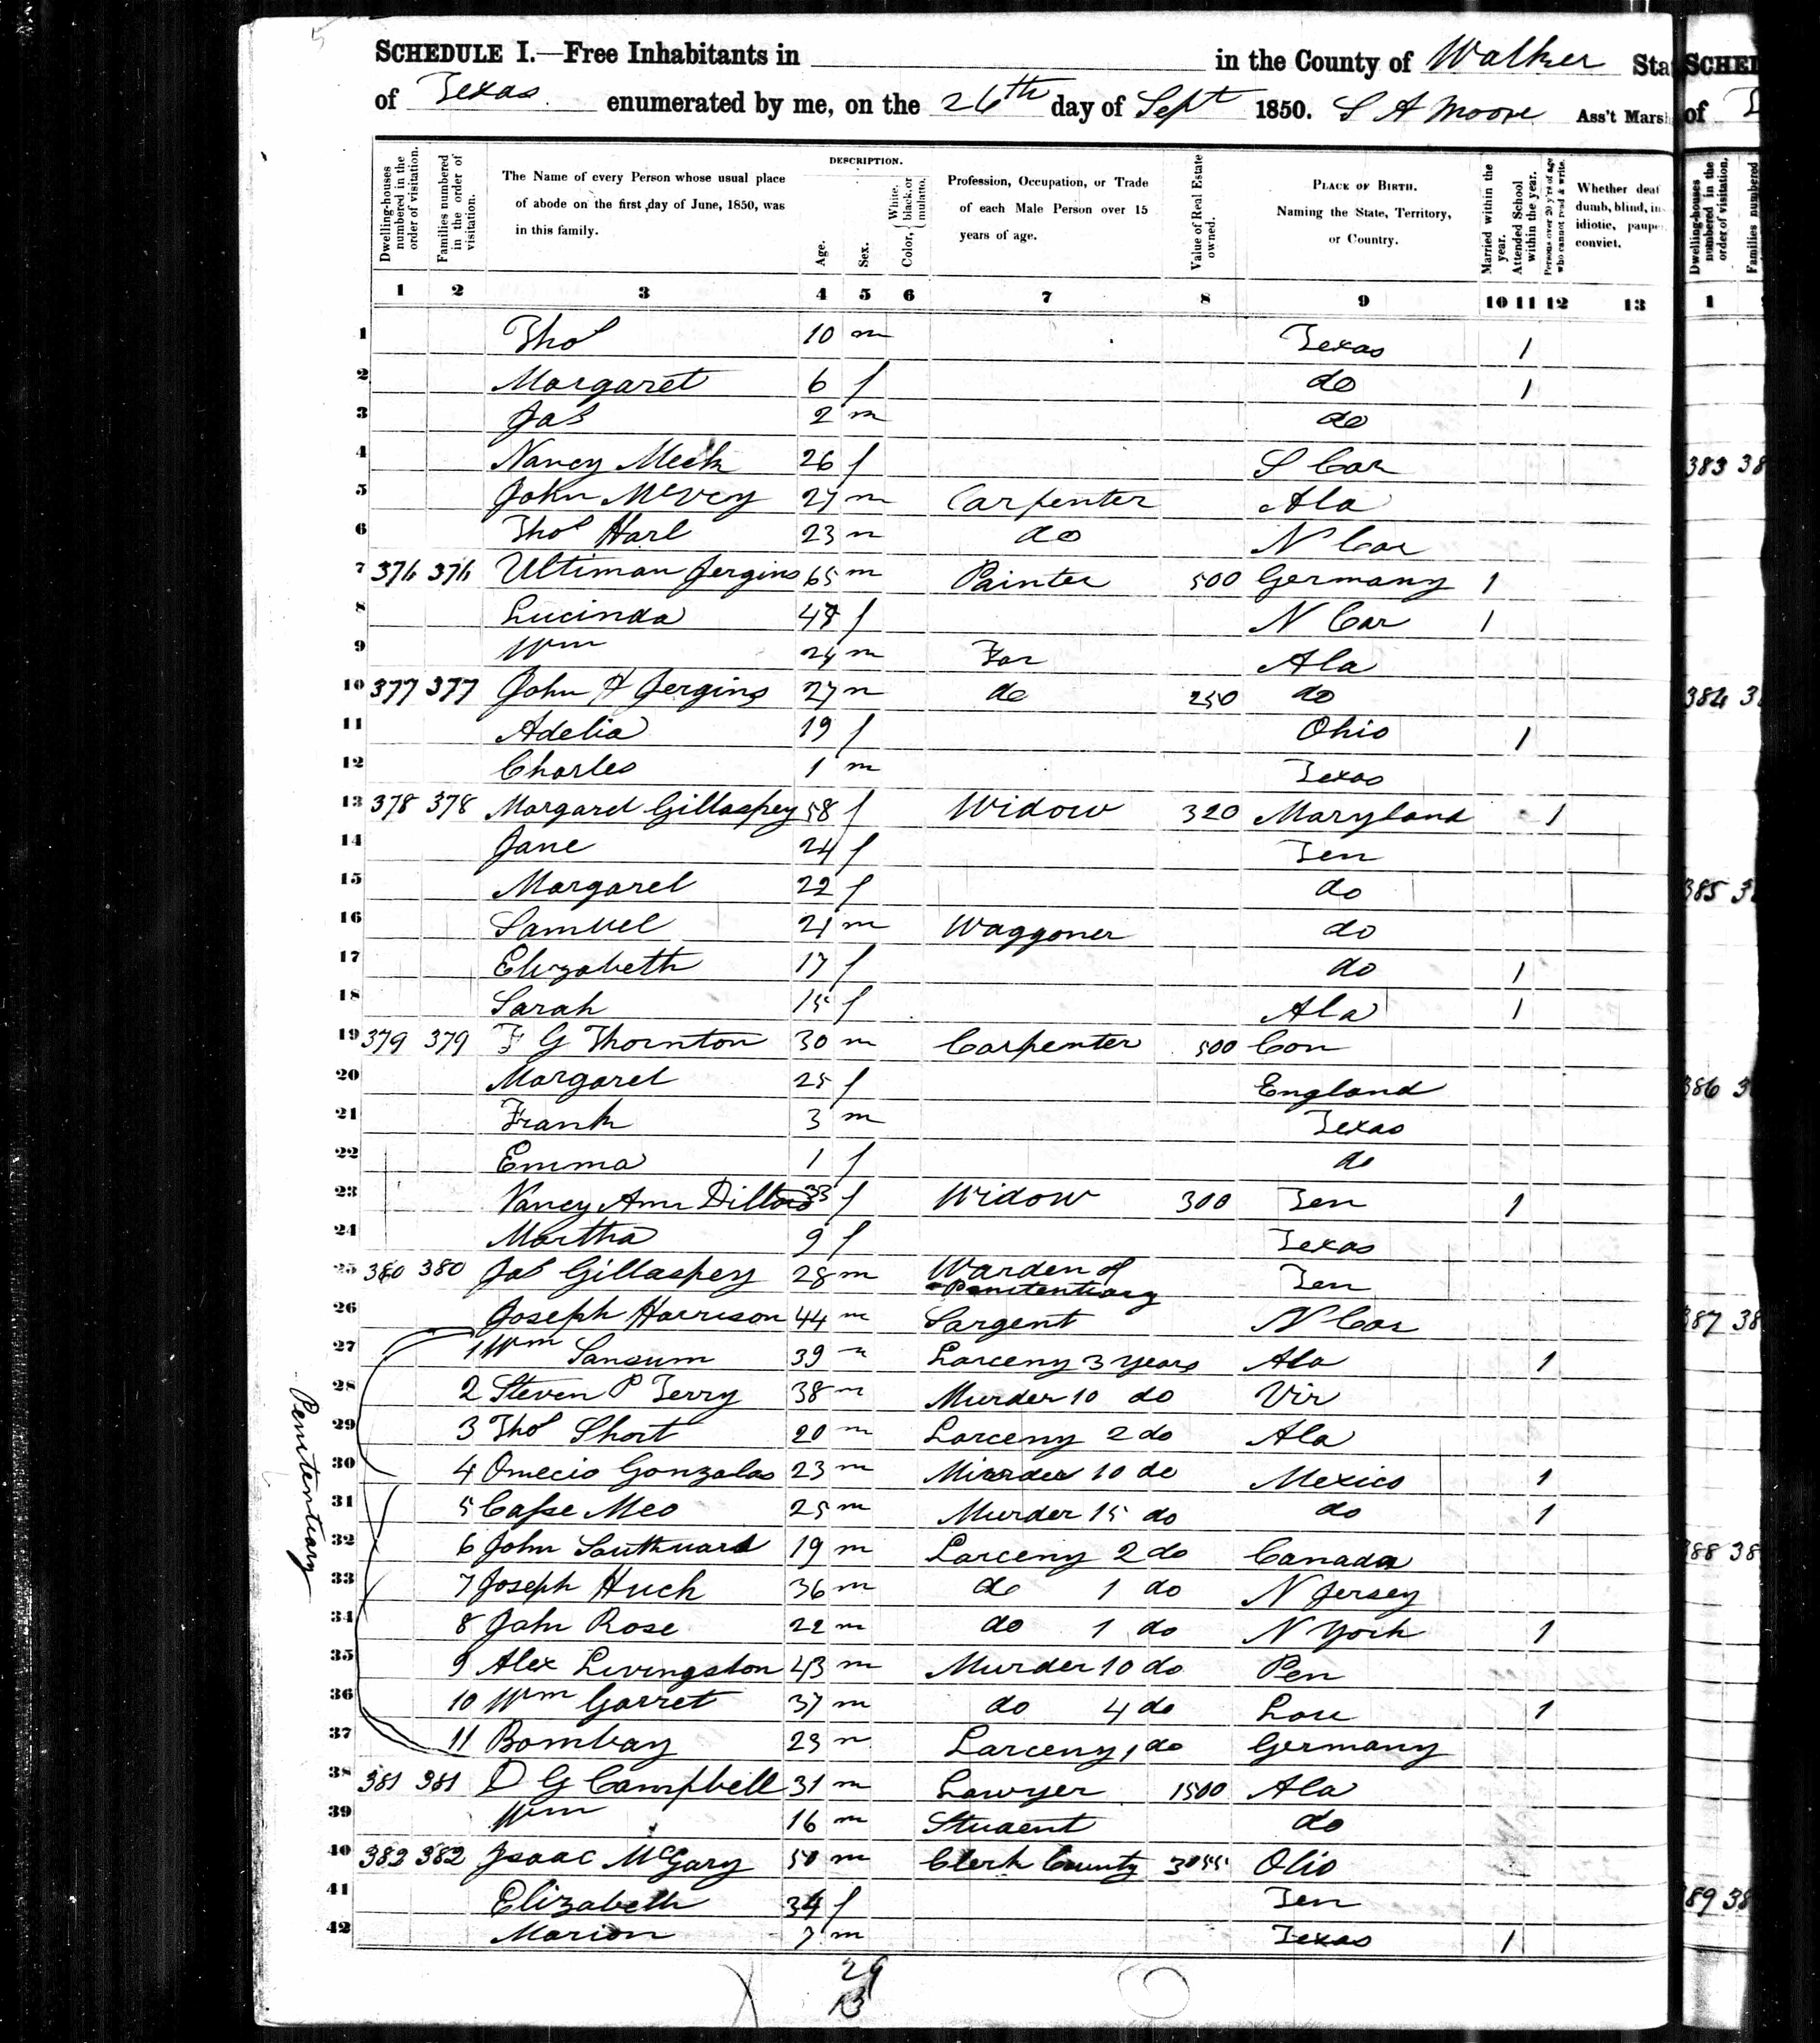 SCHEDULE I.—Free Inhabitants in in the County of Walker Sta
of Texas enumerated by me, on the 26th day of Sept 1850. S A Moore Ass't Marsh
Dwelling-houses numbered in the order of visitation.
Families numbered in the order of visitation.
The Name of every Person whose usual place of abode on the first day of June, 1850, was in this family.
DESCRIPTION.
Age.
Sex.
Color, White, black, or mulatto.
Profession, Occupation, or Trade of each Male Person over 15 years of age.
Value of Real Estate owned.
PLACE OF BIRTH. Naming the State, Territory, or Country.
Married within the year.
Attended School within the year.
Persons over 20 y'rs of age who cannot read & write.
Whether deaf dumb, blind, in idiotic, pauper convict.
1 2 3 4 5 6 7 8 9 10 11 12 13
1 Thos 10 m Texas 1
2 Margaret 6 f do 1
3 Jas 2 m do
4 Nancy Meek 26 f S Car
5 John McVey 27 m Carpenter Ala
6 Thos Harl 23 m do N Car
7 376 376 Ultiman Jergins 65 m Painter 500 Germany 1
8 Lucinda f N Car 1
9 Wm 24 m Far Ala
10 377 377 John H Jergins 27 m do 250 do
11 Adelia 19 f Ohio 1
12 Charles 1 m Texas
13 378 378 Margaret Gillaspey 58 f Widow 320 Maryland 1
14 Jane 24 f Ten
15 Margaret 22 f do
16 Samuel 21 m Waggoner do
17 Elizabeth 17 f do 1
18 Sarah 15 f Ala 1
19 379 379 F G Thornton 30 m Carpenter 500 Con
20 Margaret 25 f England
21 Frank 3 m Texas
22 Emma 1 f do
23 Nancy Ann Dillard 33 f Widow 300 Ten 1
24 Martha 9 f Texas
25 380 380 Jas Gillaspey 28 m Warden of Penitentiary Ten
26 Joseph Harrison 44 m Sargent N Car
Penitentiary
27 1 Wm Sansum 39 m Larceny 3 years Ala 1
28 2 Steven P Terry 38 m Murder 10 do Vir
29 3 Thos Short 20 m Larceny 2 do Ala
30 4 Omecio Gonzalas 23 m Murder 10 do Mexico 1
31 5 Casse Meo 25 m Murder 15 do do 1
32 6 John Southward 19 m Larceny 2 do Canada
33 7 Joseph Huch 36 m do 1 do N Jersey
34 8 John Rose 22 m do 1 do N York 1
35 9 Alex Livingston 43 m Murder 10 do Pen
36 10 Wm Garret 37 m do 4 do Lou 1
37 11 Bombay 23 m Larceny 1 do Germany
38 381 381 D G Campbell 31 m Lawyer 1500 Ala
39 Wm 16 m Student do
40 382 382 Isaac McGary 50 m Clerk County Ohio
41 Elizabeth 34 f Ten
42 Marion 7 m Texas 1
29
13
SCHE
of
Dwelling-houses numbered in the order of visitation.
Families numbered
1
383 38
384 3
385 3
386 3
387 38
388 38
89 38